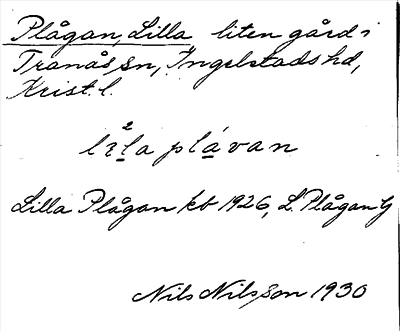 Plågan, Lilla liten gård i
Tranås sn, Ingelstads hd,
Krist. l.
lɪ²la plávan
Lilla Plågan kb 1926, L. Plågan G
Nils Nilsson 1930